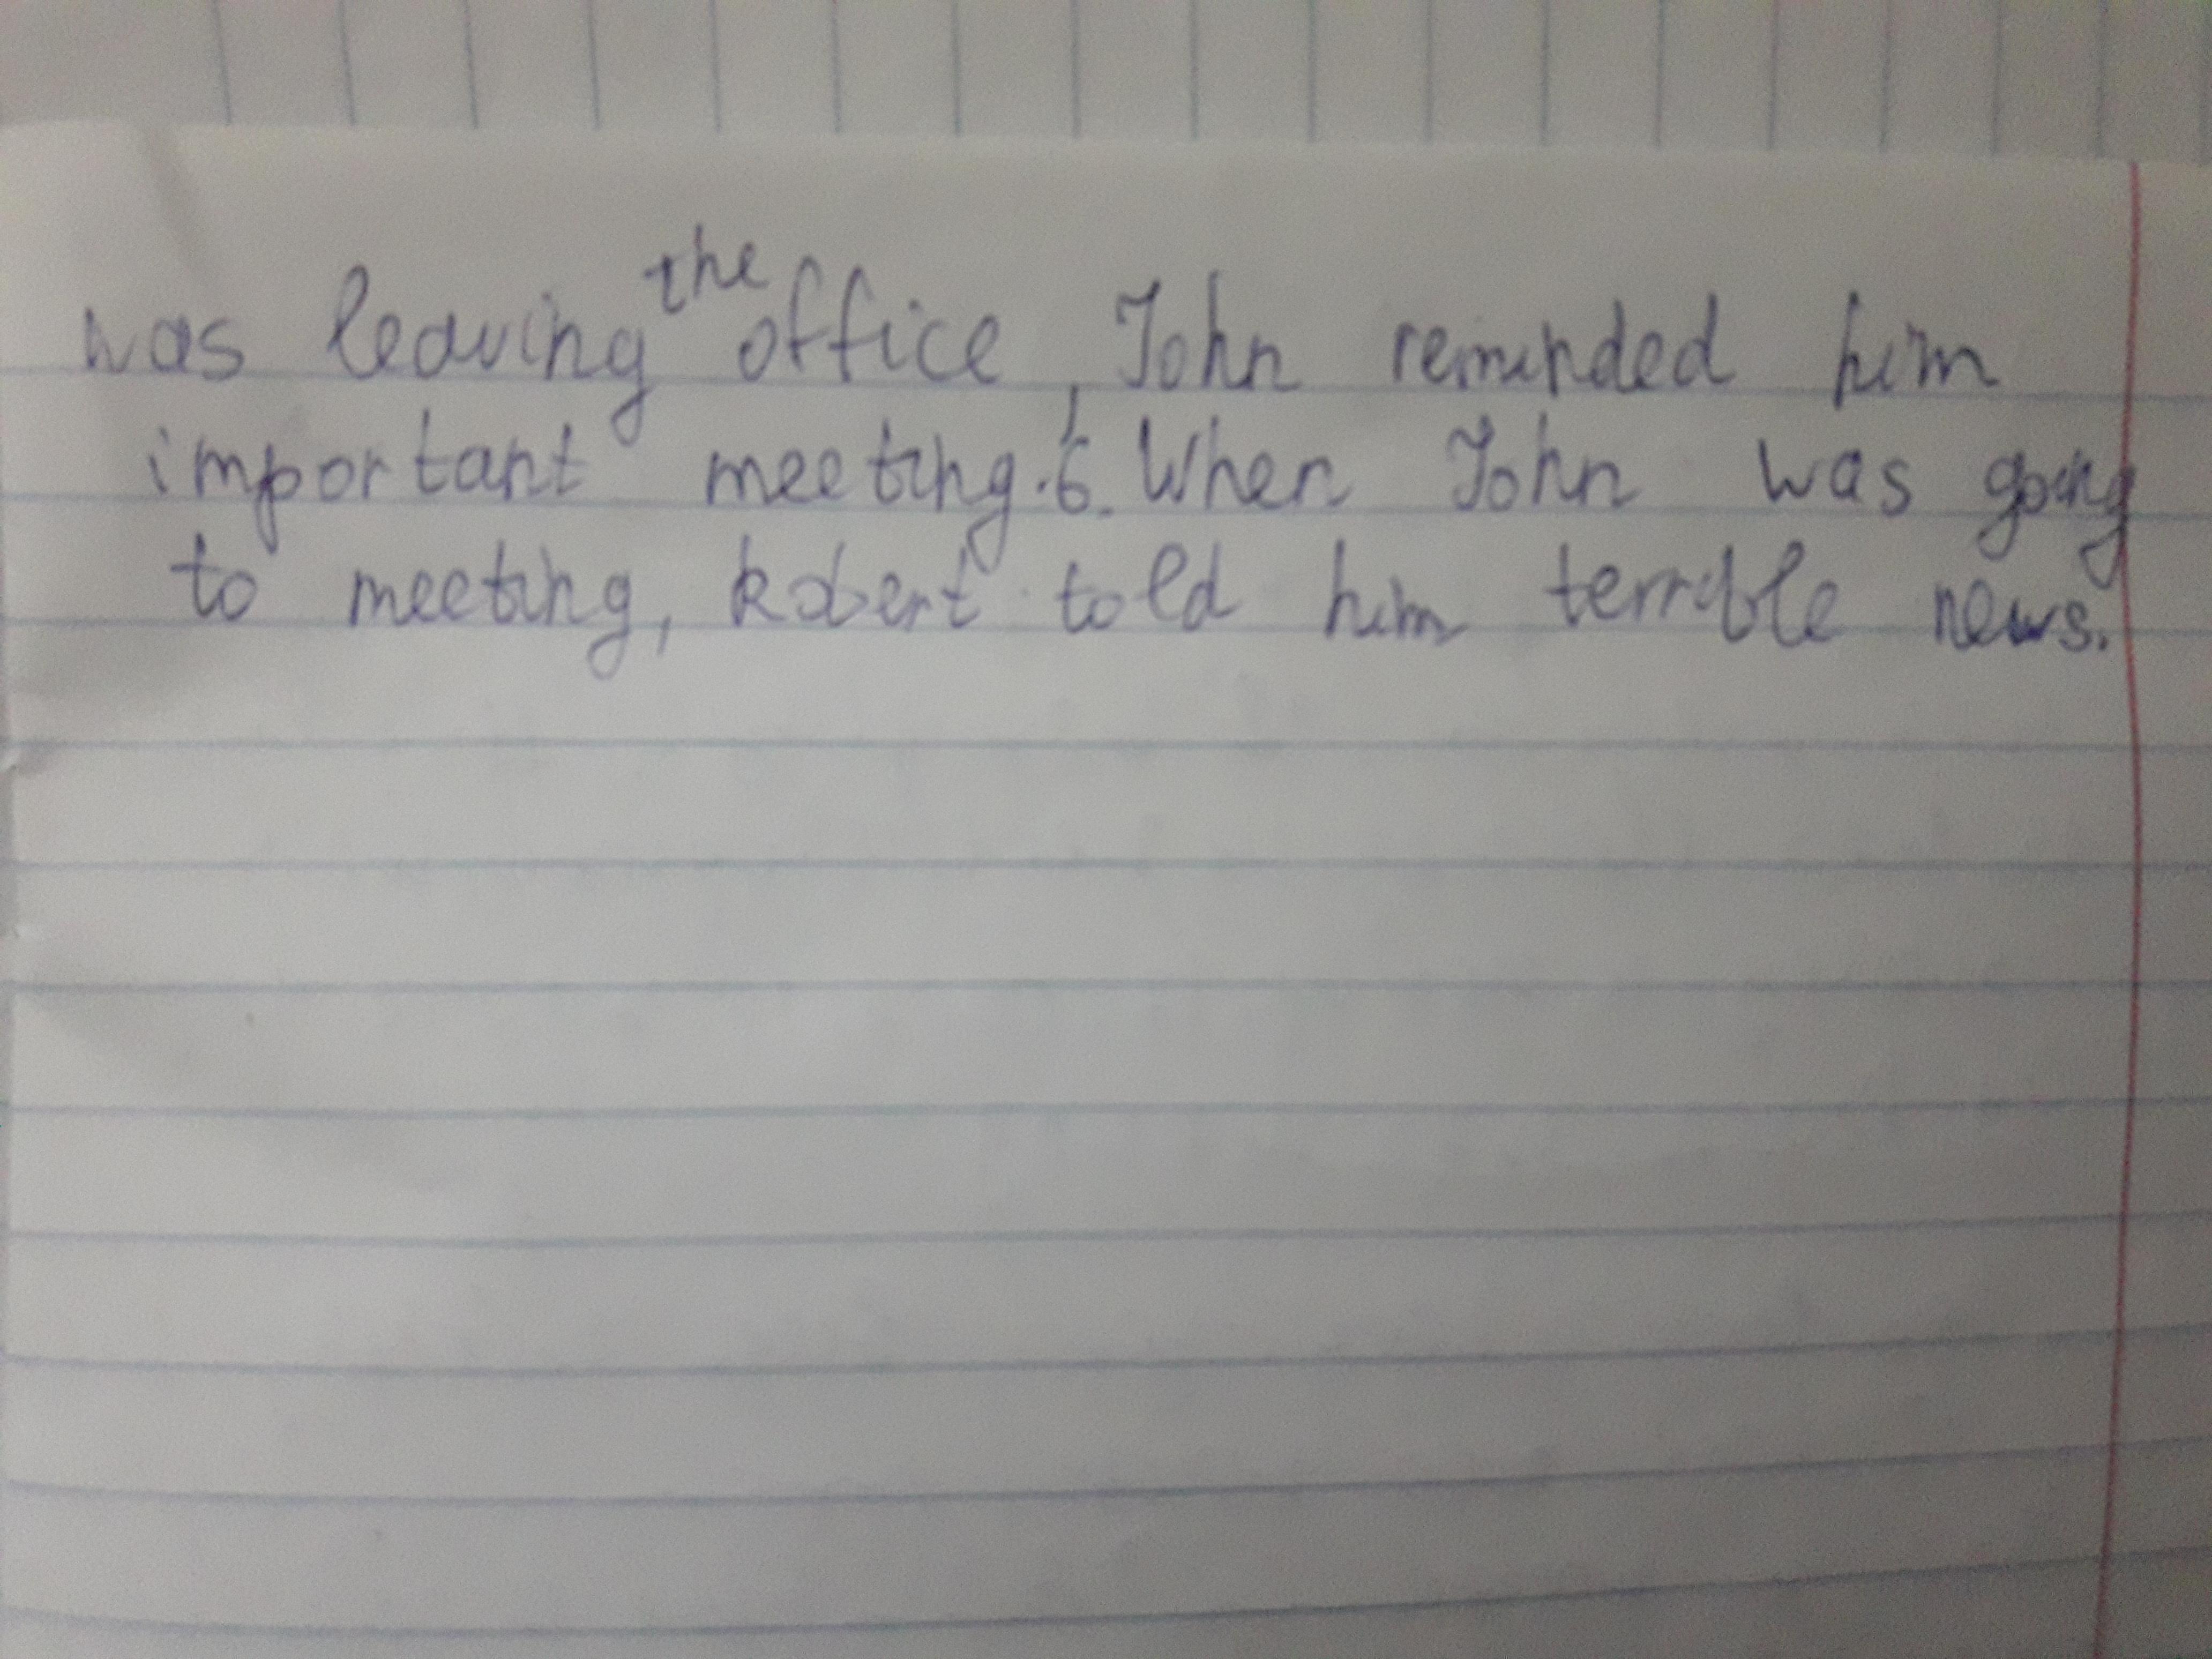 was leaving the office, John reminded him
important meeting. 6. When John was going
to meeting, Robert told him terrible news.